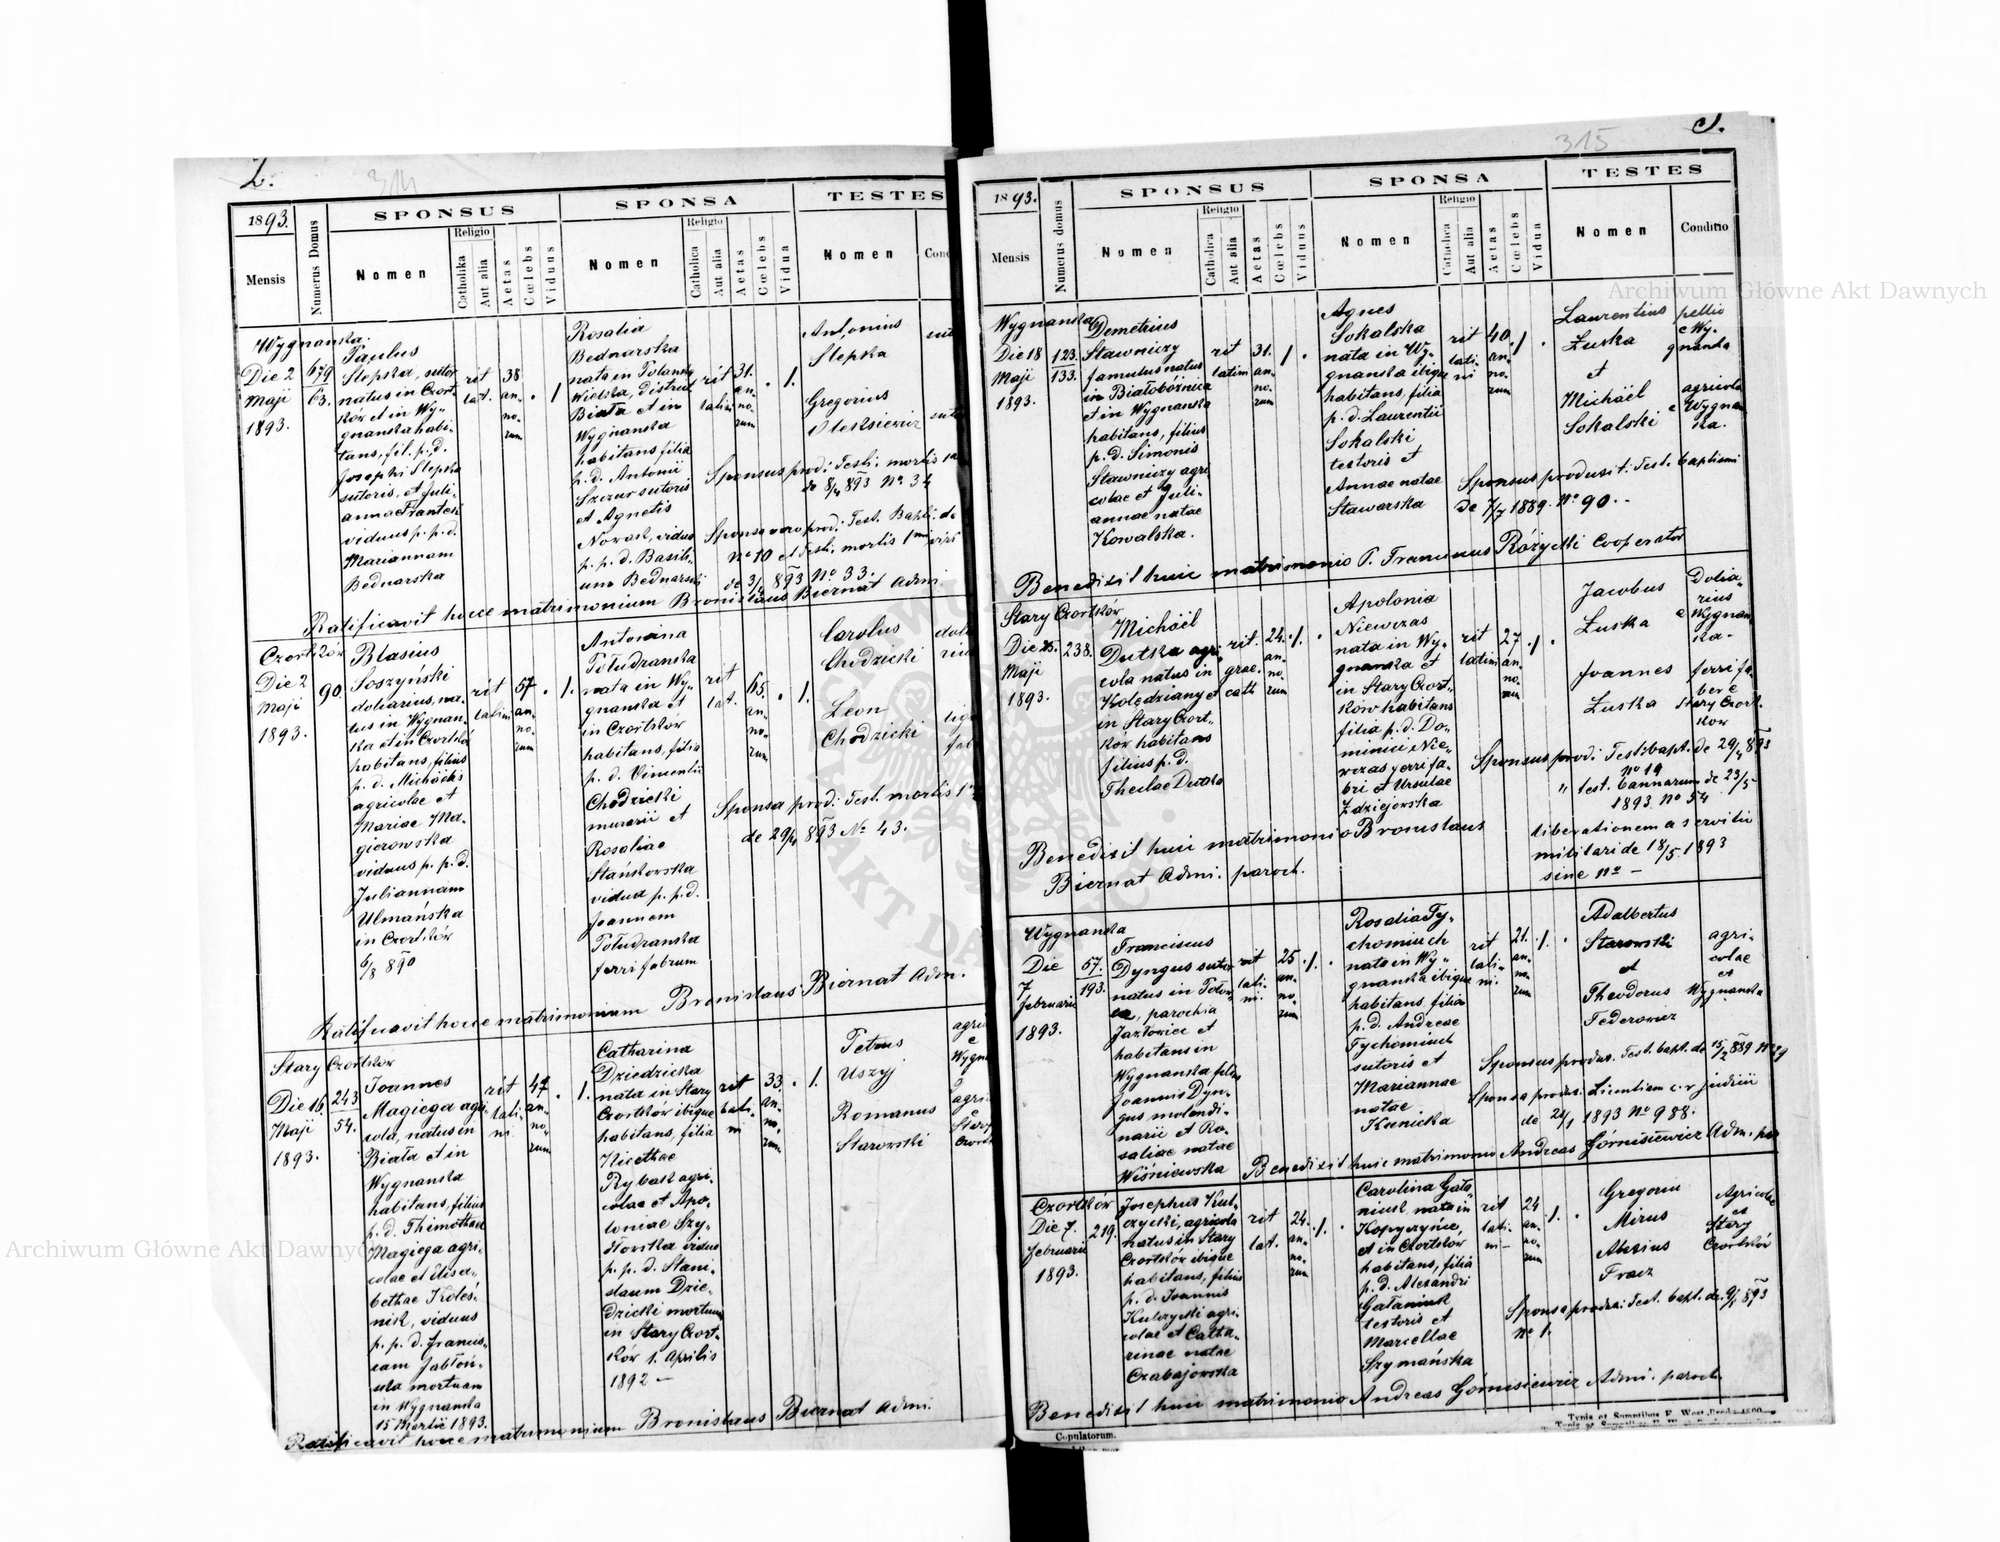 2.
314
1893.
Mensis
Numerus Domus
SPONSUS
Nomen
Religio
Catholika
Aut alia
Aetas
Cœlebs
Viduus
SPONSA
Nomen
Religio
Catholica
Aut alia
Aetas
Cœlebs
Vidua
TESTES
Nomen
Cond
Wygnanka.
Die 2
Maji
1893.
679
63.
Paulus
Slepka, sutor
natus in Czort-
ków et in Wy-
gnanka habi-
tans, fil. p. d.
Josephi Slepka
sutoris, et Juli-
anna
viduus p. p. d.
Mariannam
Bednarska
rit
lat.
38
an-
no-
rum
1
Rosalia
Bednarska
nata in
Wielka, district
Biała et in
Wygnanka
habitans filia
p. d. Antonii
Szczur sutoris
et Agnetis
Nowak, vidua
p. p. d. Basili-
um Bednarski
rit
latini
31.
an-
no-
rum
1.
Antonius
Slepka
Gregorius
Oleksiewicz
Sponsus prod: Testi. mortis
de 8/4 893 Nº 34
Sponsa vero prod: Test. Bapti: de
Nº 10 et Testi. mortis 1mi viri
de 3/4 893 Nº 33.
Ratificavit hocce matrimonium Bronislaus Biernat Admi.
Czortków
Die 2
Maji
1893.
90.
Blasius
Soszyński
doliarius, na-
tus in Wygnan-
ka et in Czortków
habitans, filius
p. d. Michäelis
agricolae et
Mariae Ma-
gierowska
viduus p. p. d.
Juliannam
Ulmańska
in Czortków
6/8 890
rit
latini
57
an-
no-
rum
1.
Antonina
Połudranska
nata in Wy-
gnanka et
in Czortków
habitans, filia
p. d. Vincentii
Chodzicki
murarii et
Rosaliae
Stańkowska
vidua p. p. d.
Joannem
Połudranska
ferri fabrum
rit
lat.
65.
an-
no-
rum
1.
Carolus
Chodzicki
Leon
Chodzicki
Sponsa prod: Test. mortis
de 29/4 893 Nº 43.
Ratificavit hocce matrimonium Bronislaus Biernat Adm.
Stary Czortków
Die 16
Maji
1893.
243
54.
Joannes
Magiega agri-
cola, natus in
Biała et in
Wygnanka
habitans, filius
p. d. Thimothaei
Magiega agri-
colae et Elisa-
bethae Koleś-
nik, viduus
p. p. d. Francis-
cam Jabłoń-
ska mortuam
in Wygnanka
15 Martii 1893.
rit
lati-
ni
47
an-
no-
rum
1.
Catharina
Dziedzicka
nata in Stary
Czortków ibique
habitans, filia
Nicethae
Rybak agri-
colae et Apo-
loniae Szy-
vidua
p. p. d. Stani-
slaum Dzie-
dzicki mortuum
in Stary Czort-
ków 1. Aprilis
1892 —
rit
lati-
ni
33.
an-
no-
rum
1.
Petrus
Uszyj
Romanus
Starowski
Ratificavit hocce matrimonium Bronislaus Biernat Admi.
3.
315
1893.
Mensis
Numerus domus
SPONSUS
Nomen
Religio
Catholica
Aut alia
Aetas
Cœlebs
Viduus
SPONSA
Nomen
Religio
Catholica
Aut alia
Aetas
Cœlebs
Vidua
TESTES
Nomen
Conditio
Wygnanka
Die 18
Maji
1893.
123.
133.
Demetrius
Stawniczy
famulus natus
in Białobóżnica
et in Wygnanka
habitans, filius
p. d. Simonis
Stawniczy agri
colae et Juli-
annae natae
Kowalska.
rit
latini
31.
an-
no-
rum
1.
Agnes
Sokalska
nata in Wy-
gnanka ibique
habitans, filia
p. d. Laurentii
Sokalski
textoris et
Annae natae
Stawarska
rit
lati-
ni
40
an-
no-
rum
1.
Laurentius
Łuska
et
Michäel
Sokalski
pellio
e Wy-
gnanka
agricola
e Wygnan
ka.
Sponsus produxit: Test. baptismi
de 7/7 1889. Nº 90.
Benedixit huic matrimonio P. Franciscus Różycki Cooperator
Stary Czortków
Die 25.
Maji
1893.
238.
Michäel
Dutka agri-
cola natus in
Kolędziany et
in Stary Czort-
ków habitans
filius p. d.
Theclae Dutka
rit.
grae.
cath
24.
an-
no-
rum
1.
Apolonia
Niewrzas
nata in Wy-
gnanka et
in Stary Czort-
ków habitans
filia p. d. Do-
minici Nie-
wrzas ferri fa-
bri et Ursulae
Zdziejowska
rit
latini
27
an-
no-
rum
1.
Jacobus
Łuska
Joannes
Łuska
Dolia-
rius
e Wygnan
ka-
ferri fa-
ber e
Stary Czort-
kow
Sponsus prod: Testi bapt. de 29/4 893
Nº 19
" test. bannorum de 23/5
1893 Nº 54
liberationem a servitio
militari de 18/5 1893
sine Nº —
Benedixit huic matrimonio Bronislaus
Biernat Admi. paroch.
Wygnanka
Die
7
februarii
1893.
57.
193.
Franciscus
Dyngus sutor
natus in
parochia
Jazłowice et
habitans in
Wygnanka filius
Joannis Dyn-
gus molendi-
narii et Ro-
saliae natae
Wiśniewska
rit
lati-
ni.
25
an-
no-
rum
1.
Rosalia Ty-
chomiuch
nata in Wy-
gnanka ibique
habitans, filia
p. d. Andreae
Tychomiuch
sutoris et
Mariannae
natae
Kunicka
rit
lati-
ni.
21.
an-
no-
rum
1.
Adalbertus
Starowski
et
Theodorus
Federowicz
agri-
colae
et
Wygnanka
Sponsus produx. Test. bapt. de 15/2 889 Nº 29
Sponsa produx: Licentiam c. r. judicii
de 24/1 1893 Nº 988.
Benedixit huic matrimonio Andreas Górnisiewicz Adm. par
Czortków
Die 7.
februarii
1893.
219.
Josephus Kul-
czycki, agricola
natus in Stary
Czortków ibique
habitans, filius
p. d. Joannis
Kulczycki agri-
colae et Catha-
rinae natae
Czabajowska
rit
lat.
24.
an-
no-
rum
1.
Carolina Gata-
niuk nata in
Kopyczyńce,
et in Czortków
habitans, filia
p. d. Alexandri
Gataniuk
textoris et
Marcellae
Szymańska
rit
lati-
ni-
24
an-
no-
rum
1.
Gregorius
Mirus
Alexius
Fracz
Agricolae
et
Stary
Czortków
Sponsa produx: Test. bapt. de 9/1 893
Nº 1.
Benedixit huic matrimonio Andreas Górnisiewicz Admi. paroch.
Typis et Sumptibus F. West, Brody 1890
Copulatorum.
Archiwum Główne Akt Dawnych
Archiwum Główne Akt Dawnych